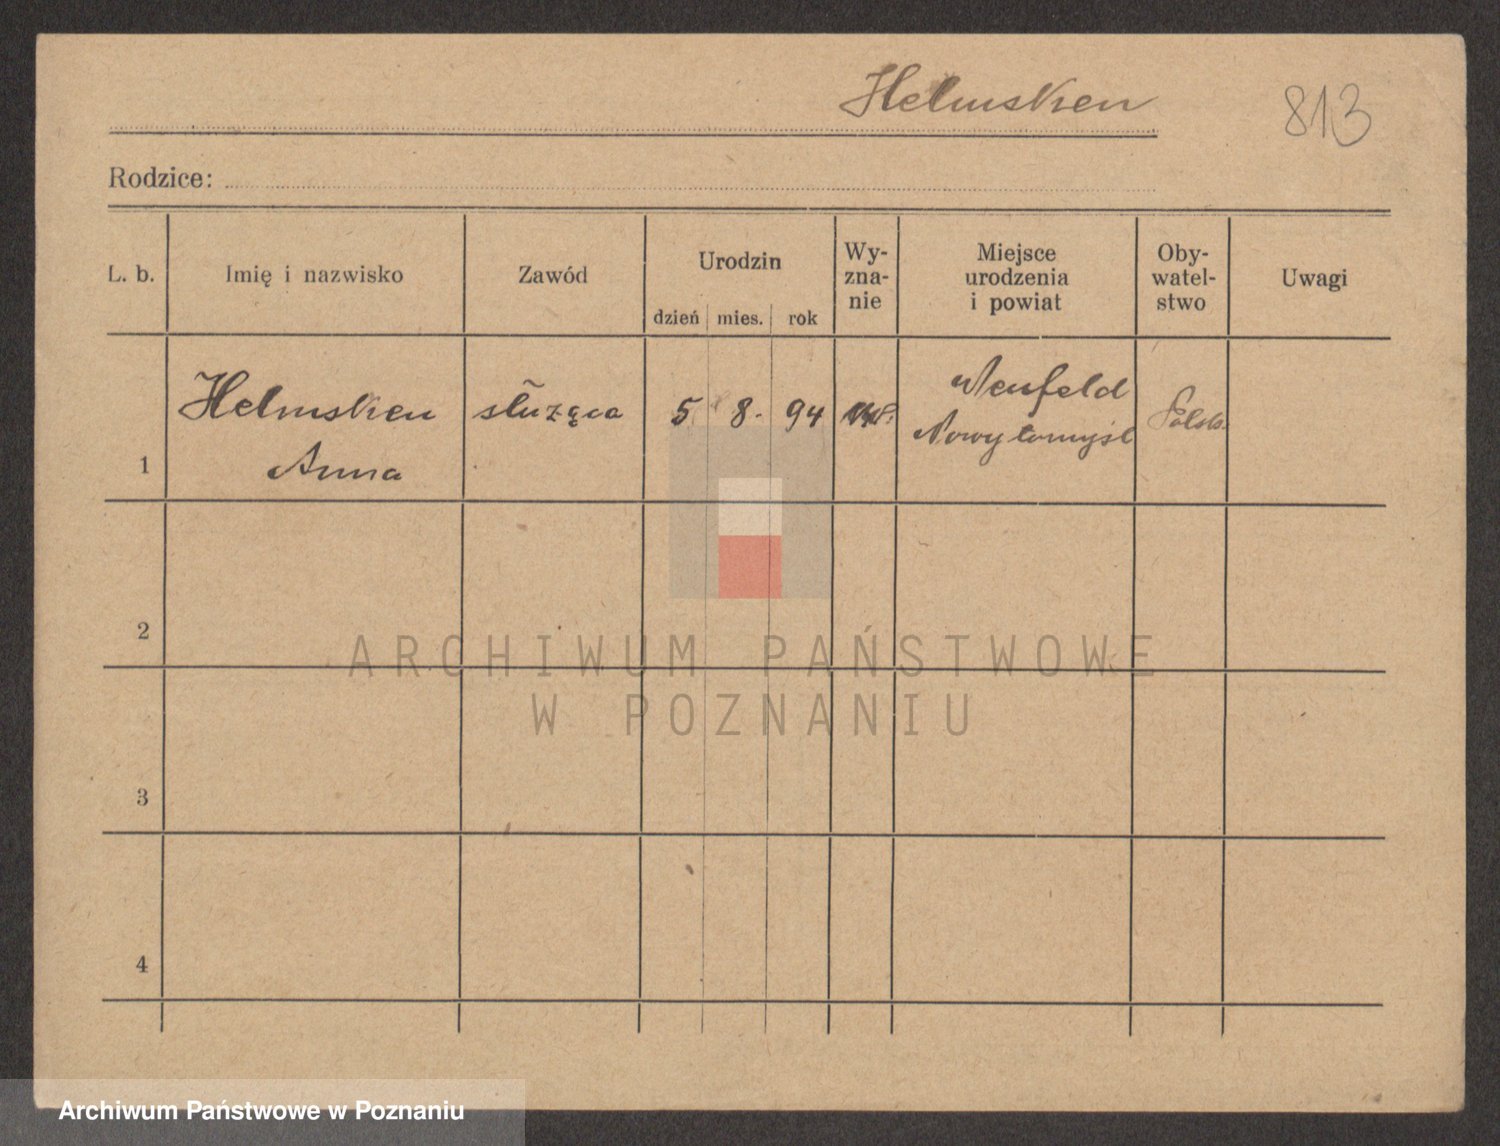 Helmsken
813
Rodzice:
L. b.
Imię i nazwisko
Zawód
Urodzin
dzień
mies.
rok
Wy-
zna-
nie
Miejsce
urodzenia
i powiat
Oby-
watel-
stwo
Uwagi
1
Helmsken
Anna
służąca
5
8.
94
Neufeld
Nowytomyśl
Polsk.
2
3
4
ARCHIWUM PAŃSTWOWE
W POZNANIU
Archiwum Państwowe w Poznaniu